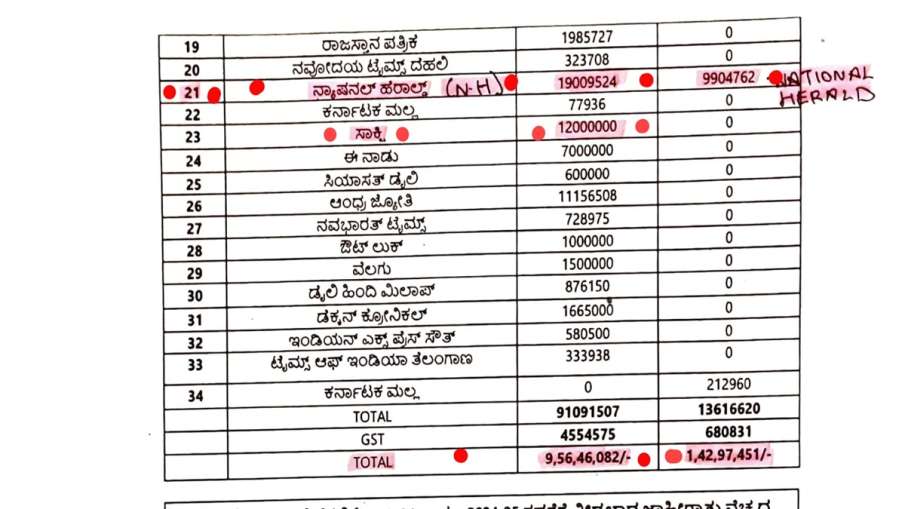 19 ರಾಜಸ್ತಾನ ಪತ್ರಿಕೆ 1985727 0
20 ನವೋದಯ ಟೈಮ್ಸ್ ದೆಹಲಿ 323708 0
21 ನ್ಯಾಷನಲ್ ಹೆರಾಲ್ಡ್ (N-H) 19009524 9904762 NATIONAL HERALD
22 ಕರ್ನಾಟಕ ಮಲ್ಲ 77936 0
23 ಸಾಕ್ಷಿ 12000000 0
24 ಈ ನಾಡು 7000000 0
25 ಸಿಯಾಸತ್ ಡೈಲಿ 600000 0
26 ಆಂಧ್ರ ಜ್ಯೋತಿ 11156508 0
27 ನವಭಾರತ್ ಟೈಮ್ಸ್ 728975 0
28 ಔಟ್ ಲುಕ್ 1000000 0
29 ವೆಲಗು 1500000 0
30 ಡೈಲಿ ಹಿಂದಿ ಮಿಲಾಪ್ 876150 0
31 ಡಕ್ಕನ್ ಕ್ರೋನಿಕಲ್ 1665000 0
32 ಇಂಡಿಯನ್ ಎಕ್ಸ್ ಪ್ರೆಸ್ ಸೌತ್ 580500 0
33 ಟೈಮ್ಸ್ ಆಫ್ ಇಂಡಿಯಾ ತೆಲಂಗಾಣ 333938 0
34 ಕರ್ನಾಟಕ ಮಲ್ಲ 0 212960
TOTAL 91091507 13616620
GST 4554575 680831
TOTAL 9,56,46,082/- 1,42,97,451/-